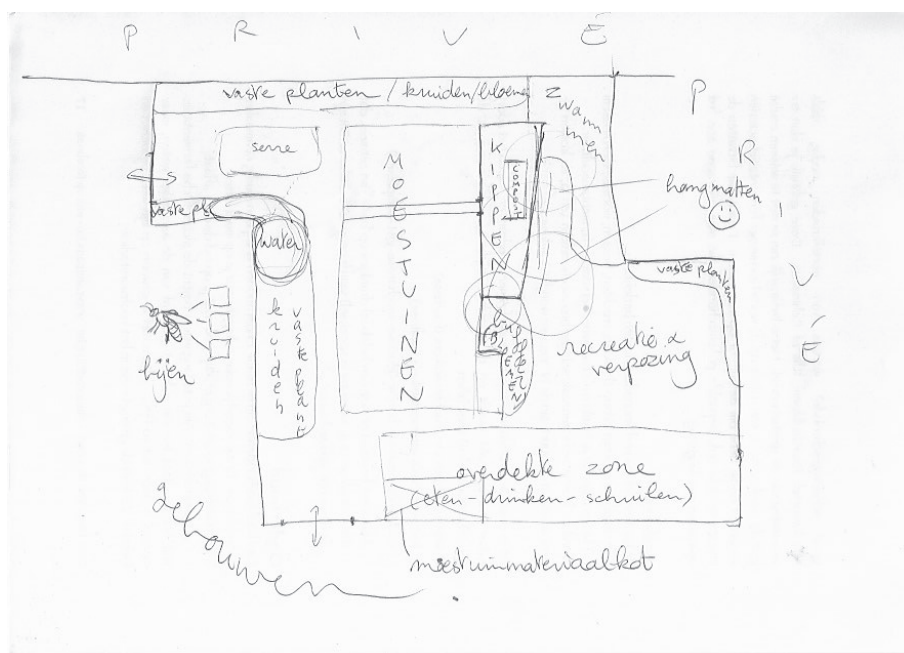 PRIVÉ
vaste planten / kruiden/bloemen
zwammen
PRIVÉ
serre
MOESTUINEN
KIPPEN
COMPOST
hangmatten
vaste pl
water
vaste planten
bijen
kruiden
vaste plant
recreatie &
verpozing
overdekte zone
(eten-drinken-schuilen)
gebouwen
moestuinmateriaalkot